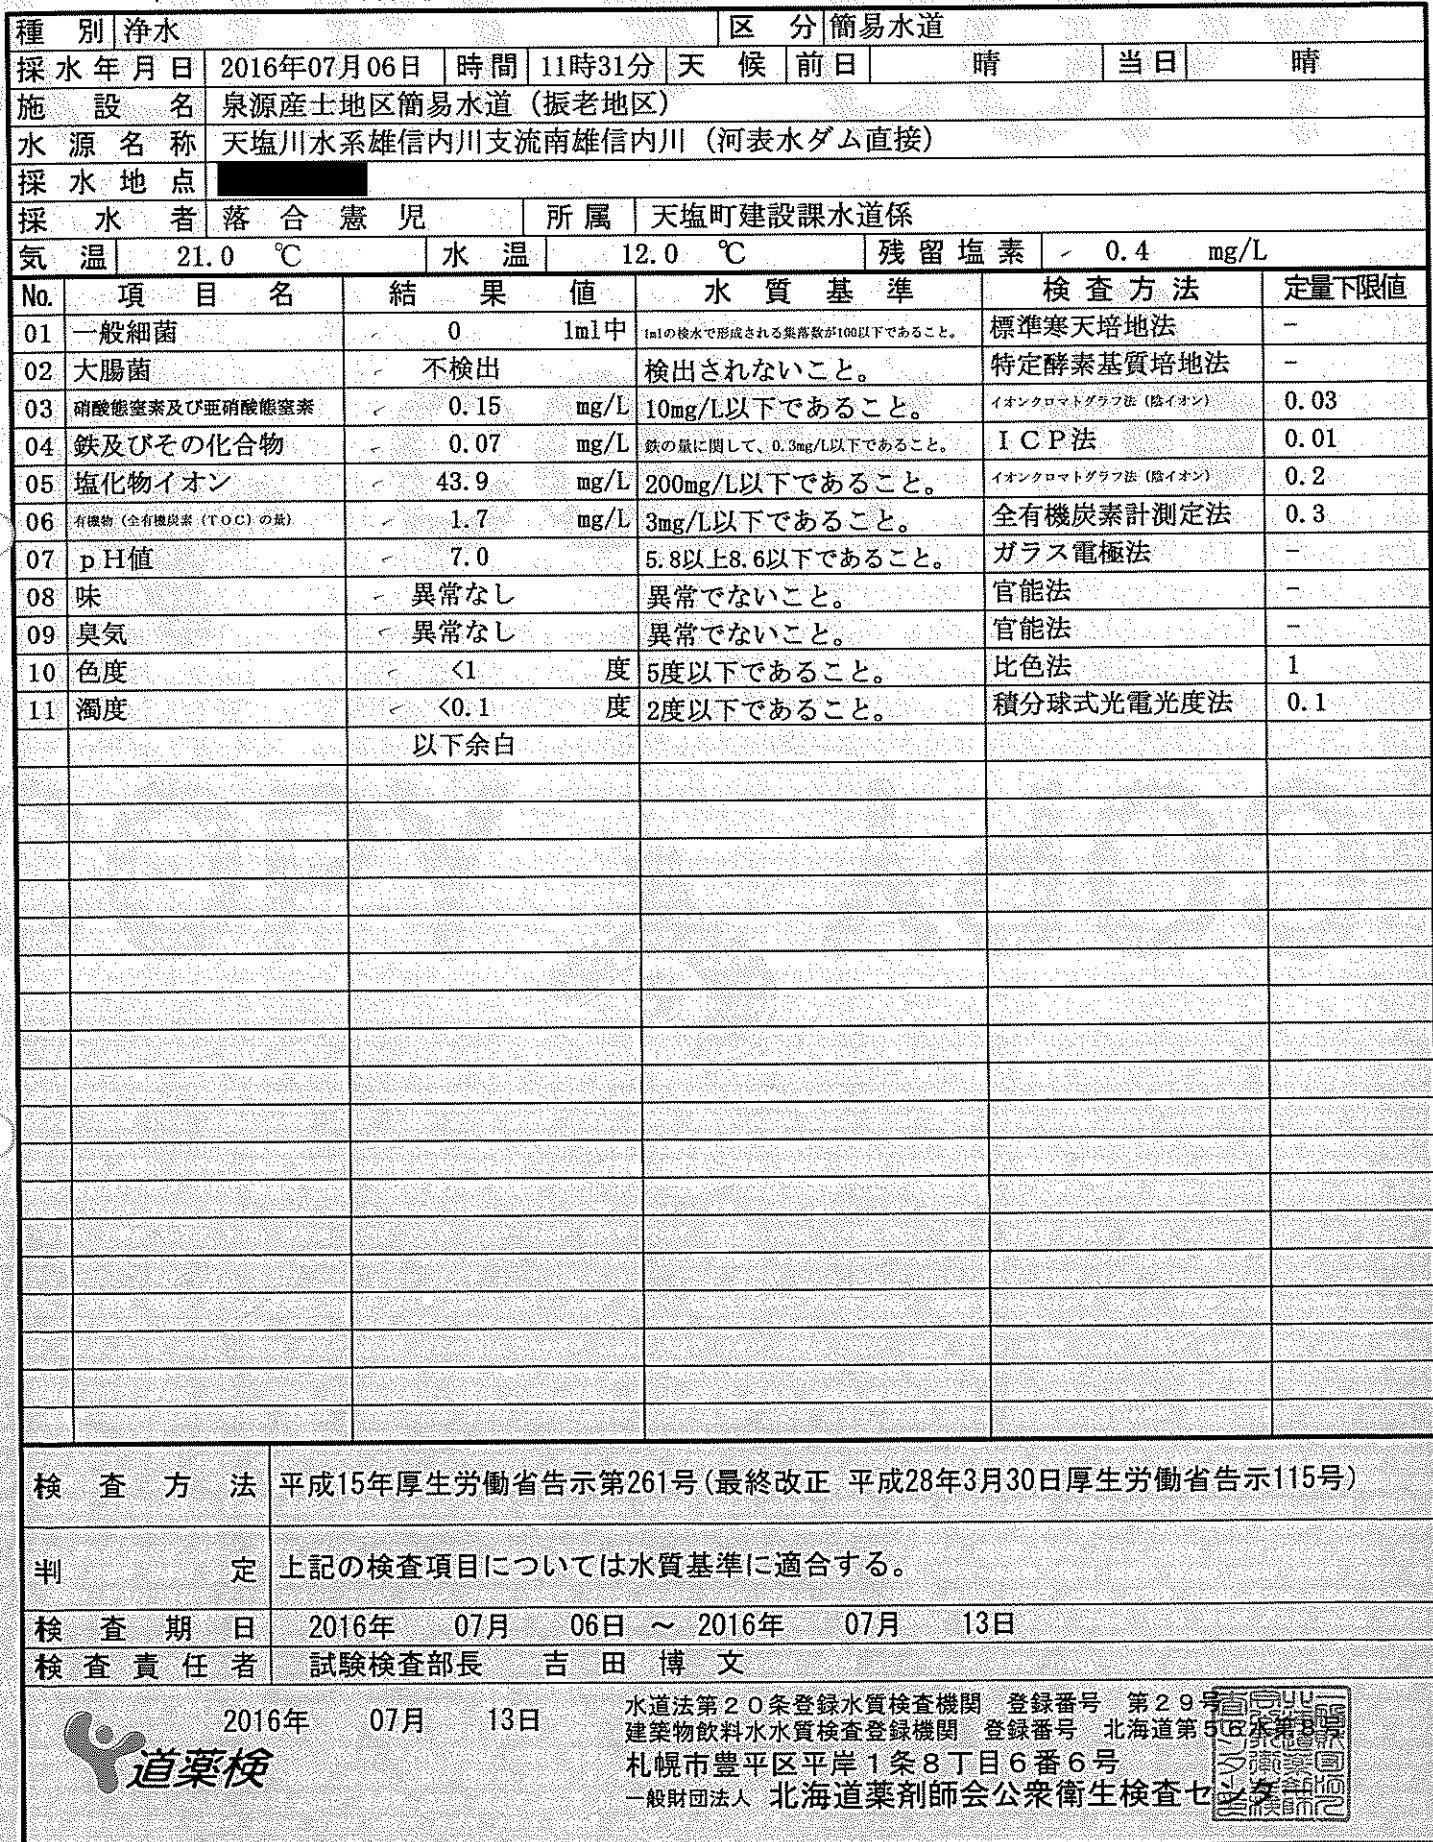 種別 浄水 区分 簡易水道
採水年月日 2016年07月06日 時間 11時31分 天候 前日 晴 当日 晴
施設名 泉源産士地区簡易水道（振老地区）
水源名称 天塩川水系雄信内川支流南雄信内川（河表水ダム直接）
採水地点
採水者 落合憲児 所属 天塩町建設課水道係
気温 21.0 ℃ 水温 12.0 ℃ 残留塩素 0.4 mg/L
No. 項目名 結果値 水質基準 検査方法 定量下限値
01 一般細菌 0 1ml中 1mlの検水で形成される集落数が100以下であること。 標準寒天培地法 －
02 大腸菌 不検出 検出されないこと。 特定酵素基質培地法 －
03 硝酸態窒素及び亜硝酸態窒素 0.15 mg/L 10mg/L以下であること。 イオンクロマトグラフ法（陰イオン） 0.03
04 鉄及びその化合物 0.07 mg/L 鉄の量に関して、0.3mg/L以下であること。 ＩＣＰ法 0.01
05 塩化物イオン 43.9 mg/L 200mg/L以下であること。 イオンクロマトグラフ法（陰イオン） 0.2
06 有機物（全有機炭素（ＴＯＣ）の量） 1.7 mg/L 3mg/L以下であること。 全有機炭素計測定法 0.3
07 ｐＨ値 7.0 5.8以上8.6以下であること。 ガラス電極法 －
08 味 異常なし 異常でないこと。 官能法 －
09 臭気 異常なし 異常でないこと。 官能法 －
10 色度 <1 度 5度以下であること。 比色法 1
11 濁度 <0.1 度 2度以下であること。 積分球式光電光度法 0.1
以下余白
検査方法 平成15年厚生労働省告示第261号(最終改正 平成28年3月30日厚生労働省告示115号)
判定 上記の検査項目については水質基準に適合する。
検査期日 2016年 07月 06日 ～ 2016年 07月 13日
検査責任者 試験検査部長 吉田博文
2016年 07月 13日
道薬検
水道法第２０条登録水質検査機関 登録番号 第２９号
建築物飲料水水質検査登録機関 登録番号 北海道第５６水第８号
札幌市豊平区平岸１条８丁目６番６号
一般財団法人 北海道薬剤師会公衆衛生検査センター